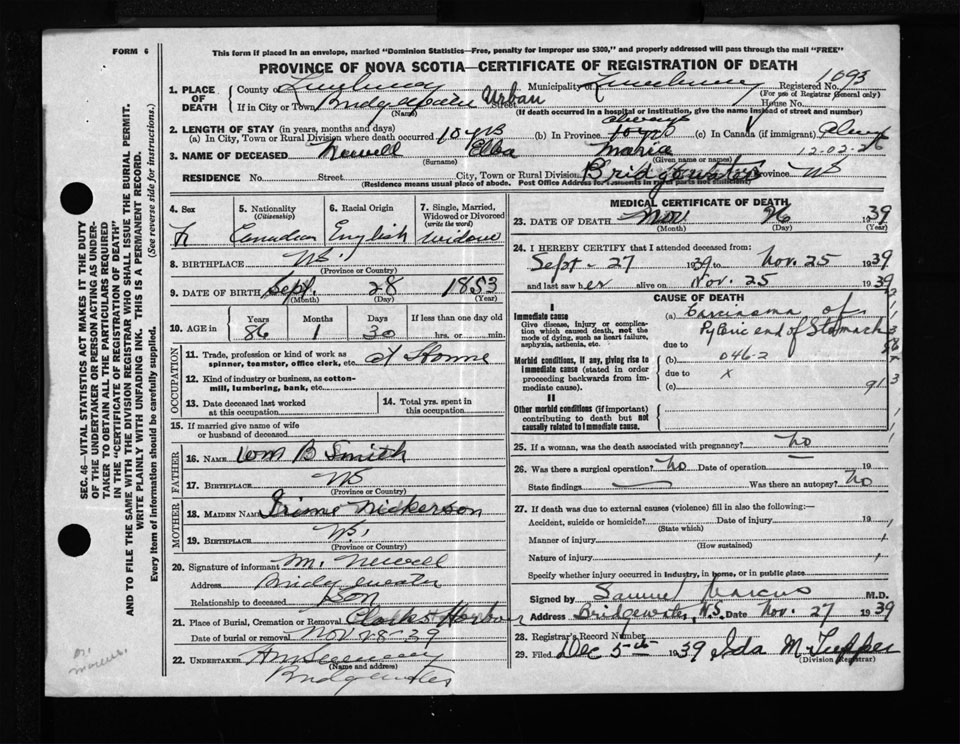 FORM 6
This form if placed in an envelope, marked "Dominion Statistics—Free, penalty for improper use $300," and properly addressed will pass through the mail "FREE"
PROVINCE OF NOVA SCOTIA—CERTIFICATE OF REGISTRATION OF DEATH
1. PLACE OF DEATH
County of Lunenburg Municipality of Lunenburg Registered No. 1093
(For use of Registrar General only)
If in City or Town Bridgewater Urban Street House No.
(Name) (If death occurred in a hospital or institution, give the name instead of street and number)
2. LENGTH OF STAY (in years, months and days) always
(a) In City, Town or Rural Division where death occurred 10 yrs (b) In Province (c) In Canada (if immigrant)
3. NAME OF DECEASED Newell Elba Maria 12-02-26
(Surname) (Given name or names)
RESIDENCE No. Street City, Town or Rural Division Bridgewater Province NS
(Residence means usual place of abode. Post Office Address for residents in rural parts not sufficient)
4. Sex F
5. Nationality (Citizenship) Canadian
6. Racial Origin English
7. Single, Married, Widowed or Divorced (write the word) Widow
8. BIRTHPLACE NS.
(Province or Country)
9. DATE OF BIRTH Sept. 28 1853
(Month) (Day) (Year)
10. AGE in Years Months Days If less than one day old
86 1 30 hrs. or min.
OCCUPATION
11. Trade, profession or kind of work as spinner, teamster, office clerk, etc. at Home
12. Kind of industry or business, as cotton-mill, lumbering, bank, etc.
13. Date deceased last worked at this occupation
14. Total yrs. spent in this occupation
15. If married give name of wife or husband of deceased
FATHER
16. NAME Wm B Smith
17. BIRTHPLACE NS
(Province or Country)
MOTHER
18. MAIDEN NAME Nickerson
19. BIRTHPLACE NS.
(Province or Country)
20. Signature of informant M. Newell
Address Bridgewater
Relationship to deceased Son
21. Place of Burial, Cremation or Removal Clarks Harbour
Date of burial or removal Nov 28-39
22. UNDERTAKER
(Name and address)
Bridgewater
MEDICAL CERTIFICATE OF DEATH
23. DATE OF DEATH Nov 26 1939
(Month) (Day) (Year)
24. I HEREBY CERTIFY that I attended deceased from:
Sept - 27 1939 to Nov. 25 1939
and last saw her alive on Nov. 25 1939
CAUSE OF DEATH
I
Immediate cause
Give disease, injury or complication which caused death, not the mode of dying, such as heart failure, asphyxia, asthenia, etc.
(a) Carcinoma of
Pyloric end of Stomach
due to
Morbid conditions, if any, giving rise to immediate cause (stated in order proceeding backwards from immediate cause).
(b) 046-2
due to x
(c)
II
Other morbid conditions (if important) contributing to death but not causally related to immediate cause.
25. If a woman, was the death associated with pregnancy? No
26. Was there a surgical operation? No Date of operation 19
State findings Was there an autopsy? No
27. If death was due to external causes (violence) fill in also the following:
Accident, suicide or homicide? Date of injury 19
(State which)
Manner of injury
(How sustained)
Nature of injury
Specify whether injury occurred in industry, in home, or in public place
Signed by Samuel Marcus M.D.
Address Bridgewater, N.S. Date Nov. 27 1939
28. Registrar's Record Number
29. Filed Dec 5th 1939 Ida M Tupper
(Division Registrar)
SEC. 46—VITAL STATISTICS ACT MAKES IT THE DUTY
OF THE UNDERTAKER OR PERSON ACTING AS UNDER-
TAKER TO OBTAIN ALL THE PARTICULARS REQUIRED
IN THE "CERTIFICATE OF REGISTRATION OF DEATH"
AND TO FILE THE SAME WITH THE DIVISION REGISTRAR WHO SHALL ISSUE THE BURIAL PERMIT.
WRITE PLAINLY WITH UNFADING INK. THIS IS A PERMANENT RECORD.
Every item of information should be carefully supplied. (See reverse side for instructions.)